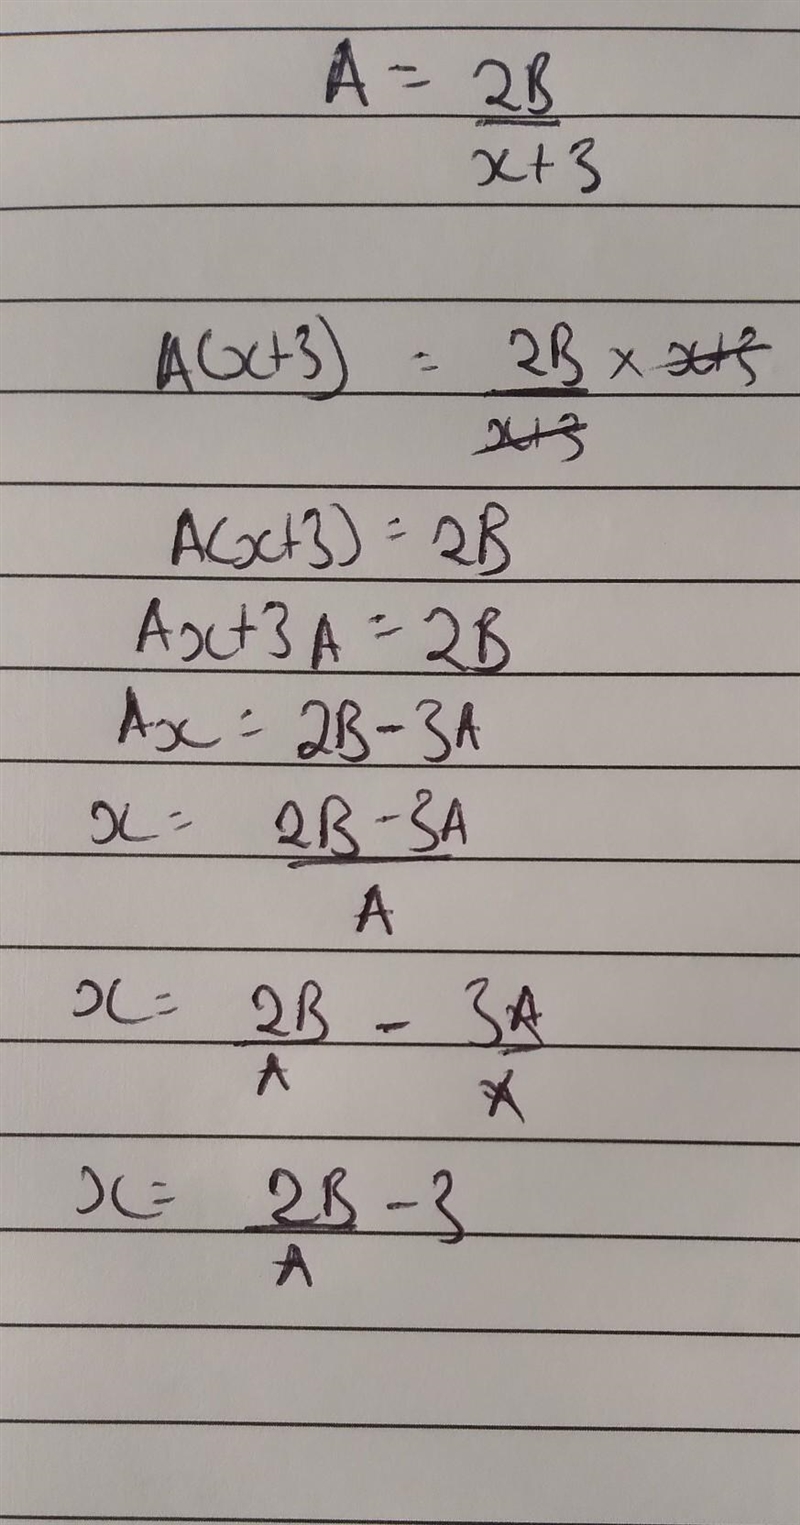 A = 2B
x+3
A(x+3) = 2B × x+3
x+3
A(x+3) = 2B
Ax+3A = 2B
Ax = 2B - 3A
x = 2B - 3A
A
x = 2B - 3A
A A
x = 2B - 3
A